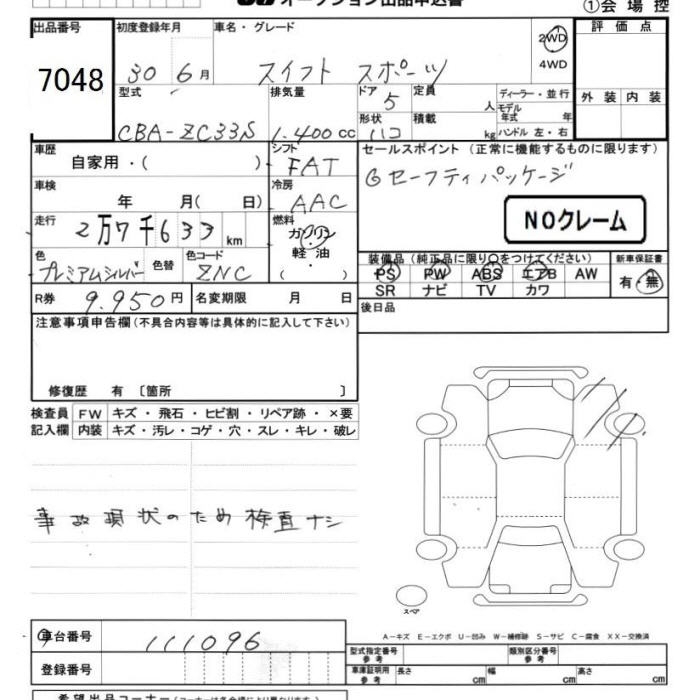 オークション出品申込書
①会場控
出品番号 初度登録年月 車名・グレード 評価点
7048 30 6月 スイフト スポーツ 2WD
4WD
型式 排気量 ドア 定員 ディーラー・並行 外装 内装
5 人 モデル年式 年
CBA-ZC33S 1.400cc 形状 積載 ハンドル 左・右
ハコ kg
車歴 シフト セールスポイント (正常に機能するものに限ります)
自家用・( ) FAT
◎セーフティパッケージ
車検 冷房
年 月( 日) AAC
走行 燃料 NOクレーム
2万7千633km ガソリン
軽油
( ・ )
色 色替 色コード 装備品 (純正品に限り○をつけてください) 新車保証書
プレミアムシルバー ZNC PS PW ABS エアB AW 有・無
SR ナビ TV カワ
R券 9.950円 名変期限 月 日 後日品
注意事項申告欄(不具合内容等は具体的に記入して下さい)
修復歴 有〔箇所 〕
検査員 FW キズ・飛石・ヒビ割・リペア跡・×要
記入欄 内装 キズ・汚レ・コゲ・穴・スレ・キレ・破レ
事故現状のため検査ナシ
スペア
A-キズ E-エクボ U-凹み W-補修跡 S-サビ C-腐食 XX-交換済
車台番号 111096
型式指定番号 参考 類別区分番号 参考
登録番号 車庫証明用 参考 長さ cm 幅 cm 高さ cm
希望出品コーナー